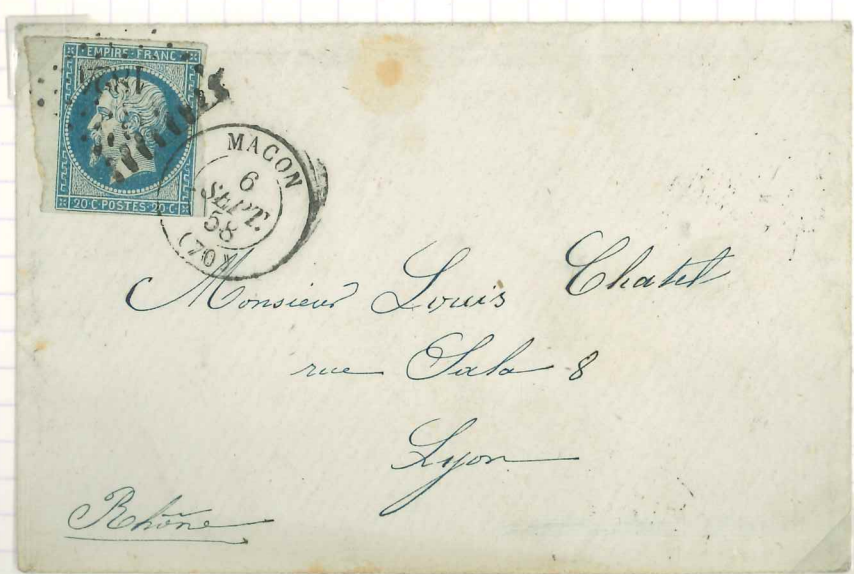 EMPIRE FRANC
1821
20·C·POSTES·20·C
MACON
6
SEPT.
58
(70)
Monsieur Louis Chatel
rue Sala 8
Lyon
Rhône